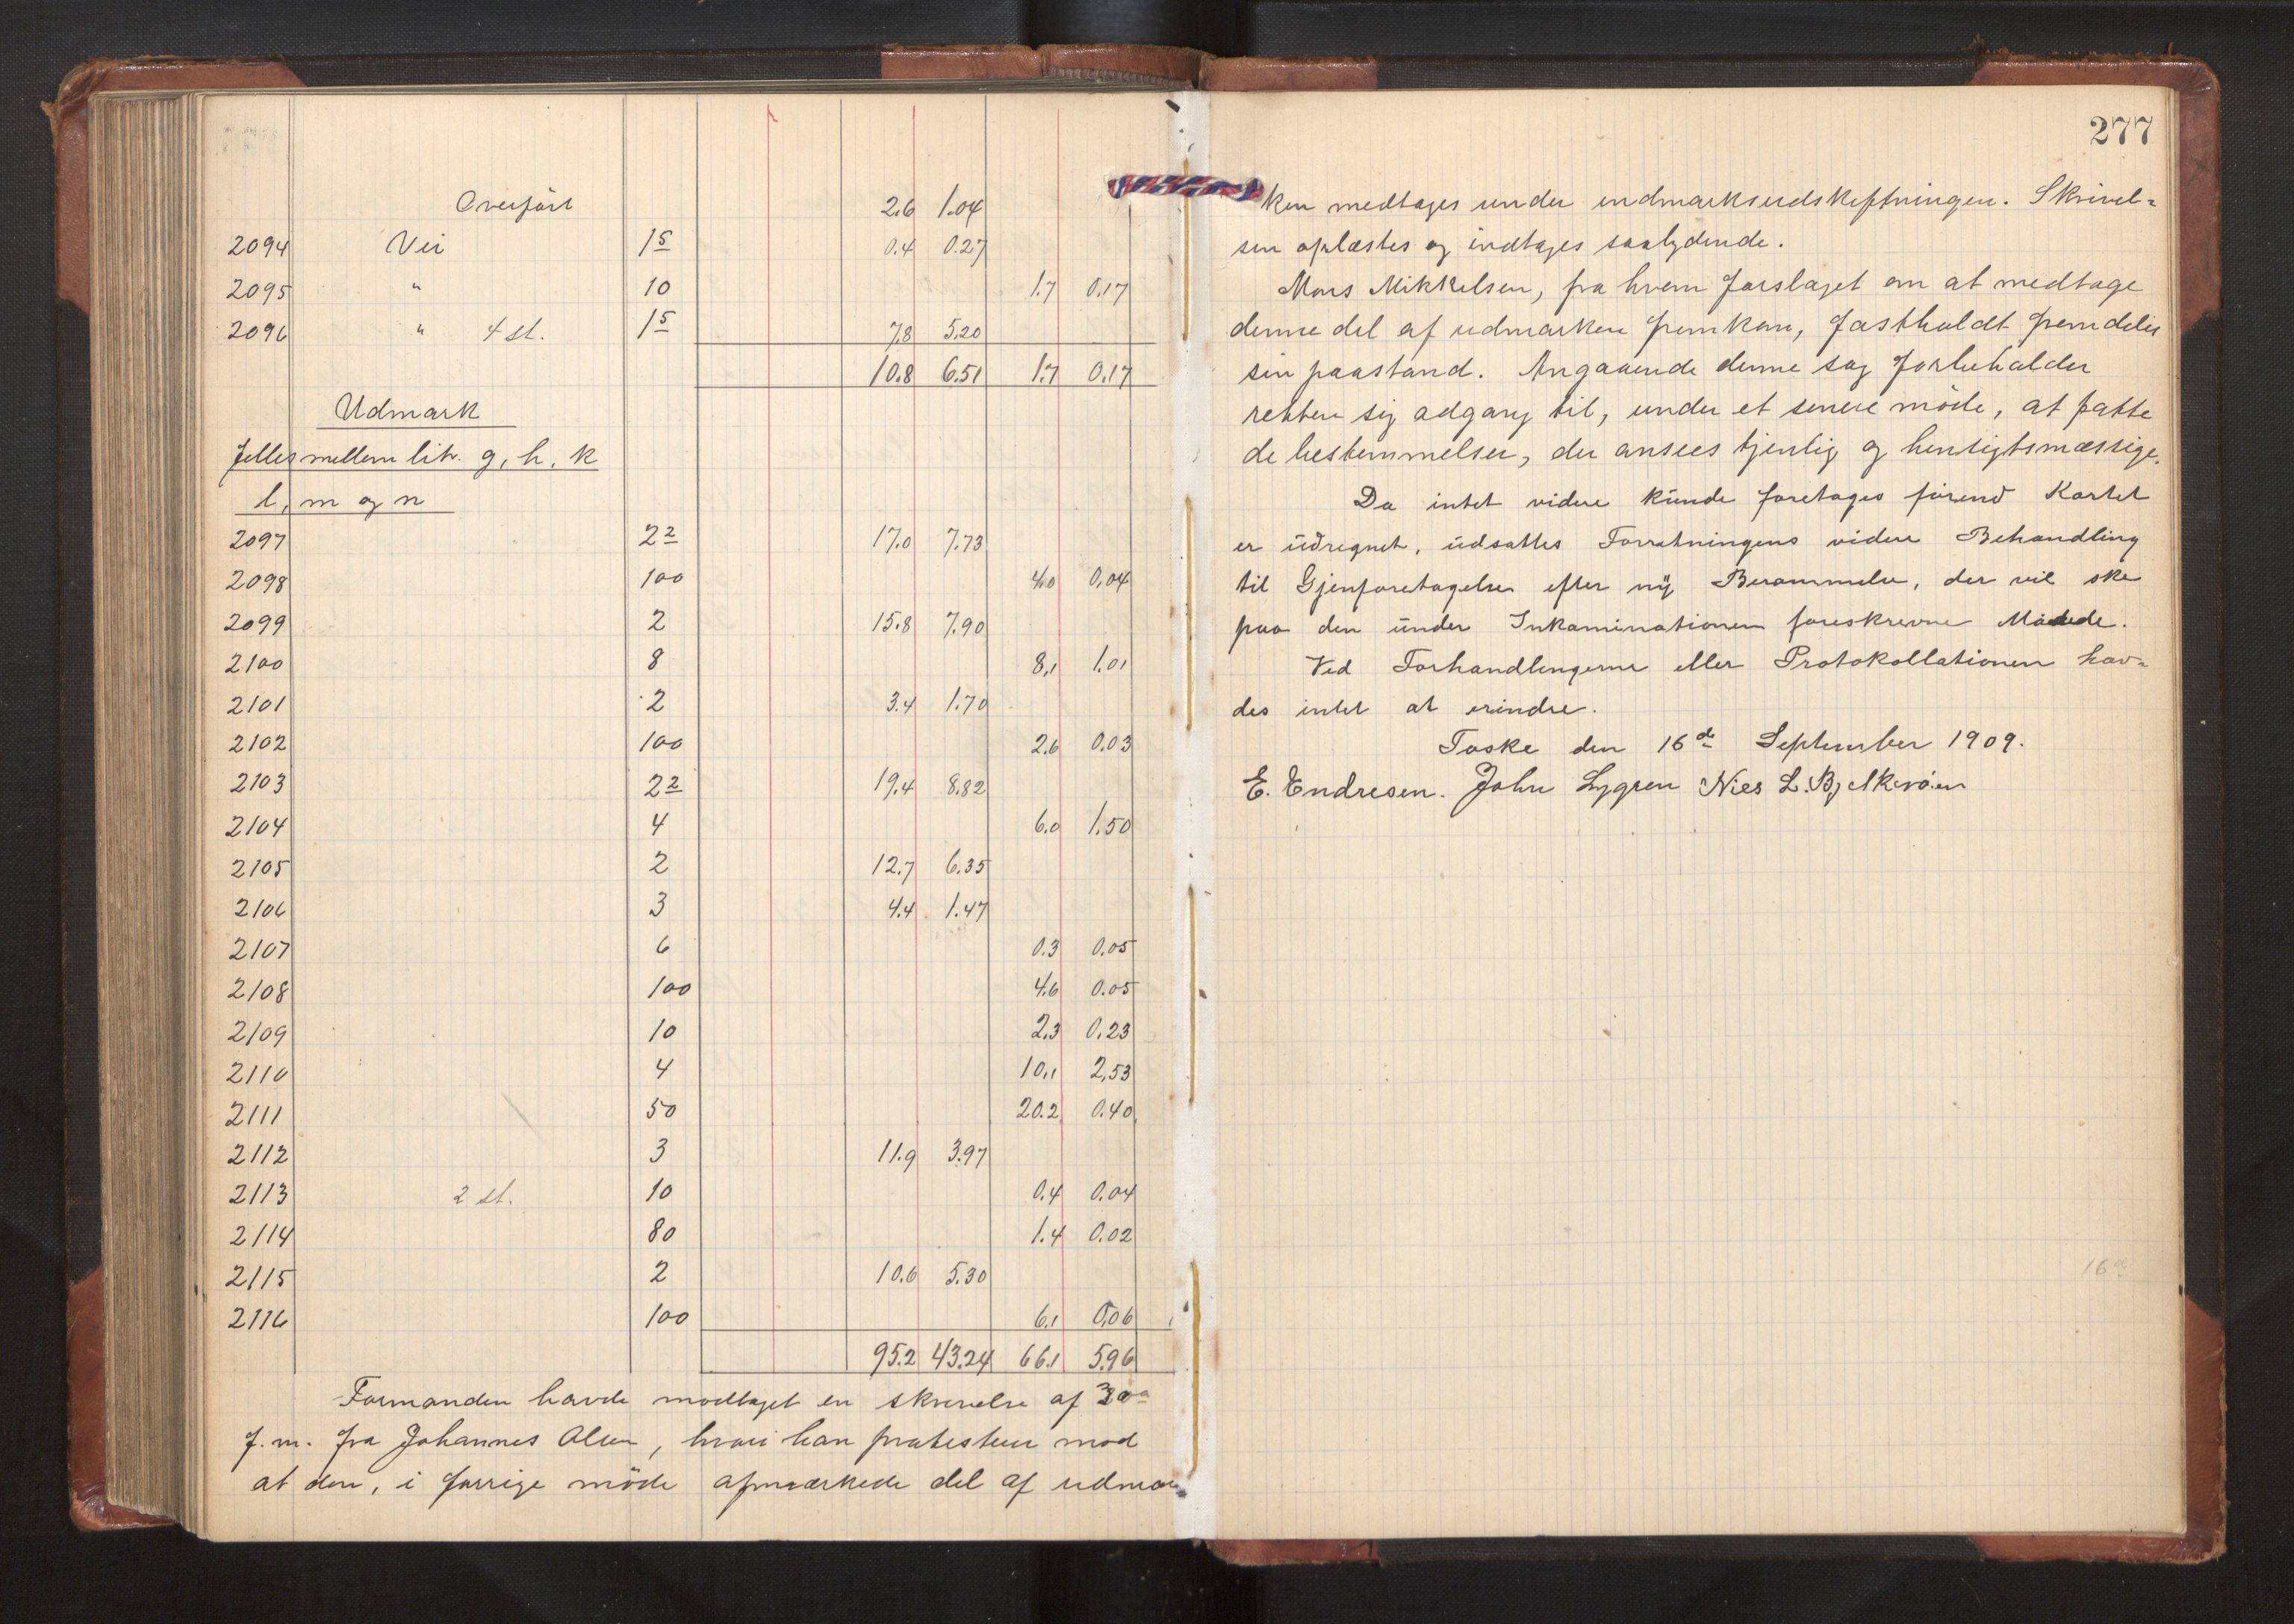 Overført 2.6 1.04
2094 Vei 15 0.4 0.27
2095 " 10 1.7 0.17
2096 " 4 st. 15 7.8 5.20
10.8 6.51 1.7 0.17
Udmark
Felles mellem litr. g, h, k
l, m og n
2097 22 17.0 7.73
2098 100 4.0 0.04
2099 2 15.8 7.90
2100 8 8.1 1.01
2101 2 3.4 1.70
2102 100 2.6 0.03
2103 22 19.4 8.82
2104 4 6.0 1.50
2105 2 12.7 6.35
2106 3 4.4 1.47
2107 6 0.3 0.05
2108 100 4.6 0.05
2109 10 2.3 0.23
2110 4 10.1 2.53
2111 50 20.2 0.40
2112 3 11.9 3.97
2113 2 st. 10 0.4 0.04
2114 80 1.4 0.02
2115 2 10.6 5.30
2116 100 6.1 0.06
95.2 43.24 66.1 5.96
Formanden havde modtaget en skrivelse af
f. m. fra Johannes Olsen, hvori han protesterer mod
at den, i forrige møde afmærkede del af udmar
277
ken medtages under indmarksudskiftningen. Skrivel-
sen oplæstes og indtages saalydende.
Mons Mikkelsen, fra hvem forslaget om at medtage
denne del af udmarken fremkom, fastholdt fremdeles
sin paastand. Angaaende denne sag forbeholder
retten sig adgang til, under et senere møde, at fatte
de bestemmelser, der ansees tjenlig og hensigtsmæssige.
Da intet videre kunde foretages førend Kartet
er udregnet, udsattes Forretningens videre Behandling
til Gjenforetagelse efter ny Berammelse, der vil ske
paa den under Inkaminationen foreskrevne Maade.
Ved Forhandlingerne eller Protokollationen hav-
des intet at erindre.
Toske den 16de September 1909.
E. Endresen. John Lygren Nils L. Bjelkerøen